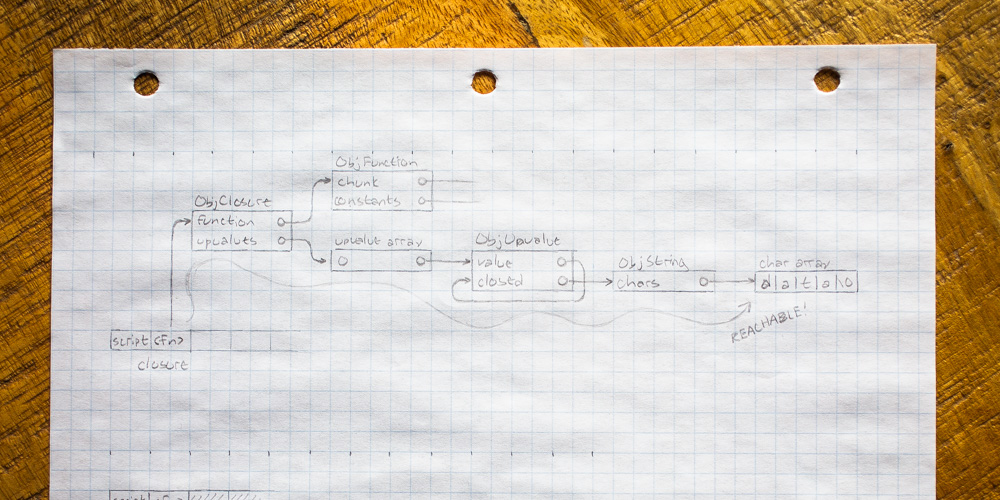 ObjFunction
chunk
constants
ObjClosure
function
upvalues
upvalue array
ObjUpvalue
value
closed
ObjString
chars
char array
d|a|t|a|\0
REACHABLE!
script <fn>
closure